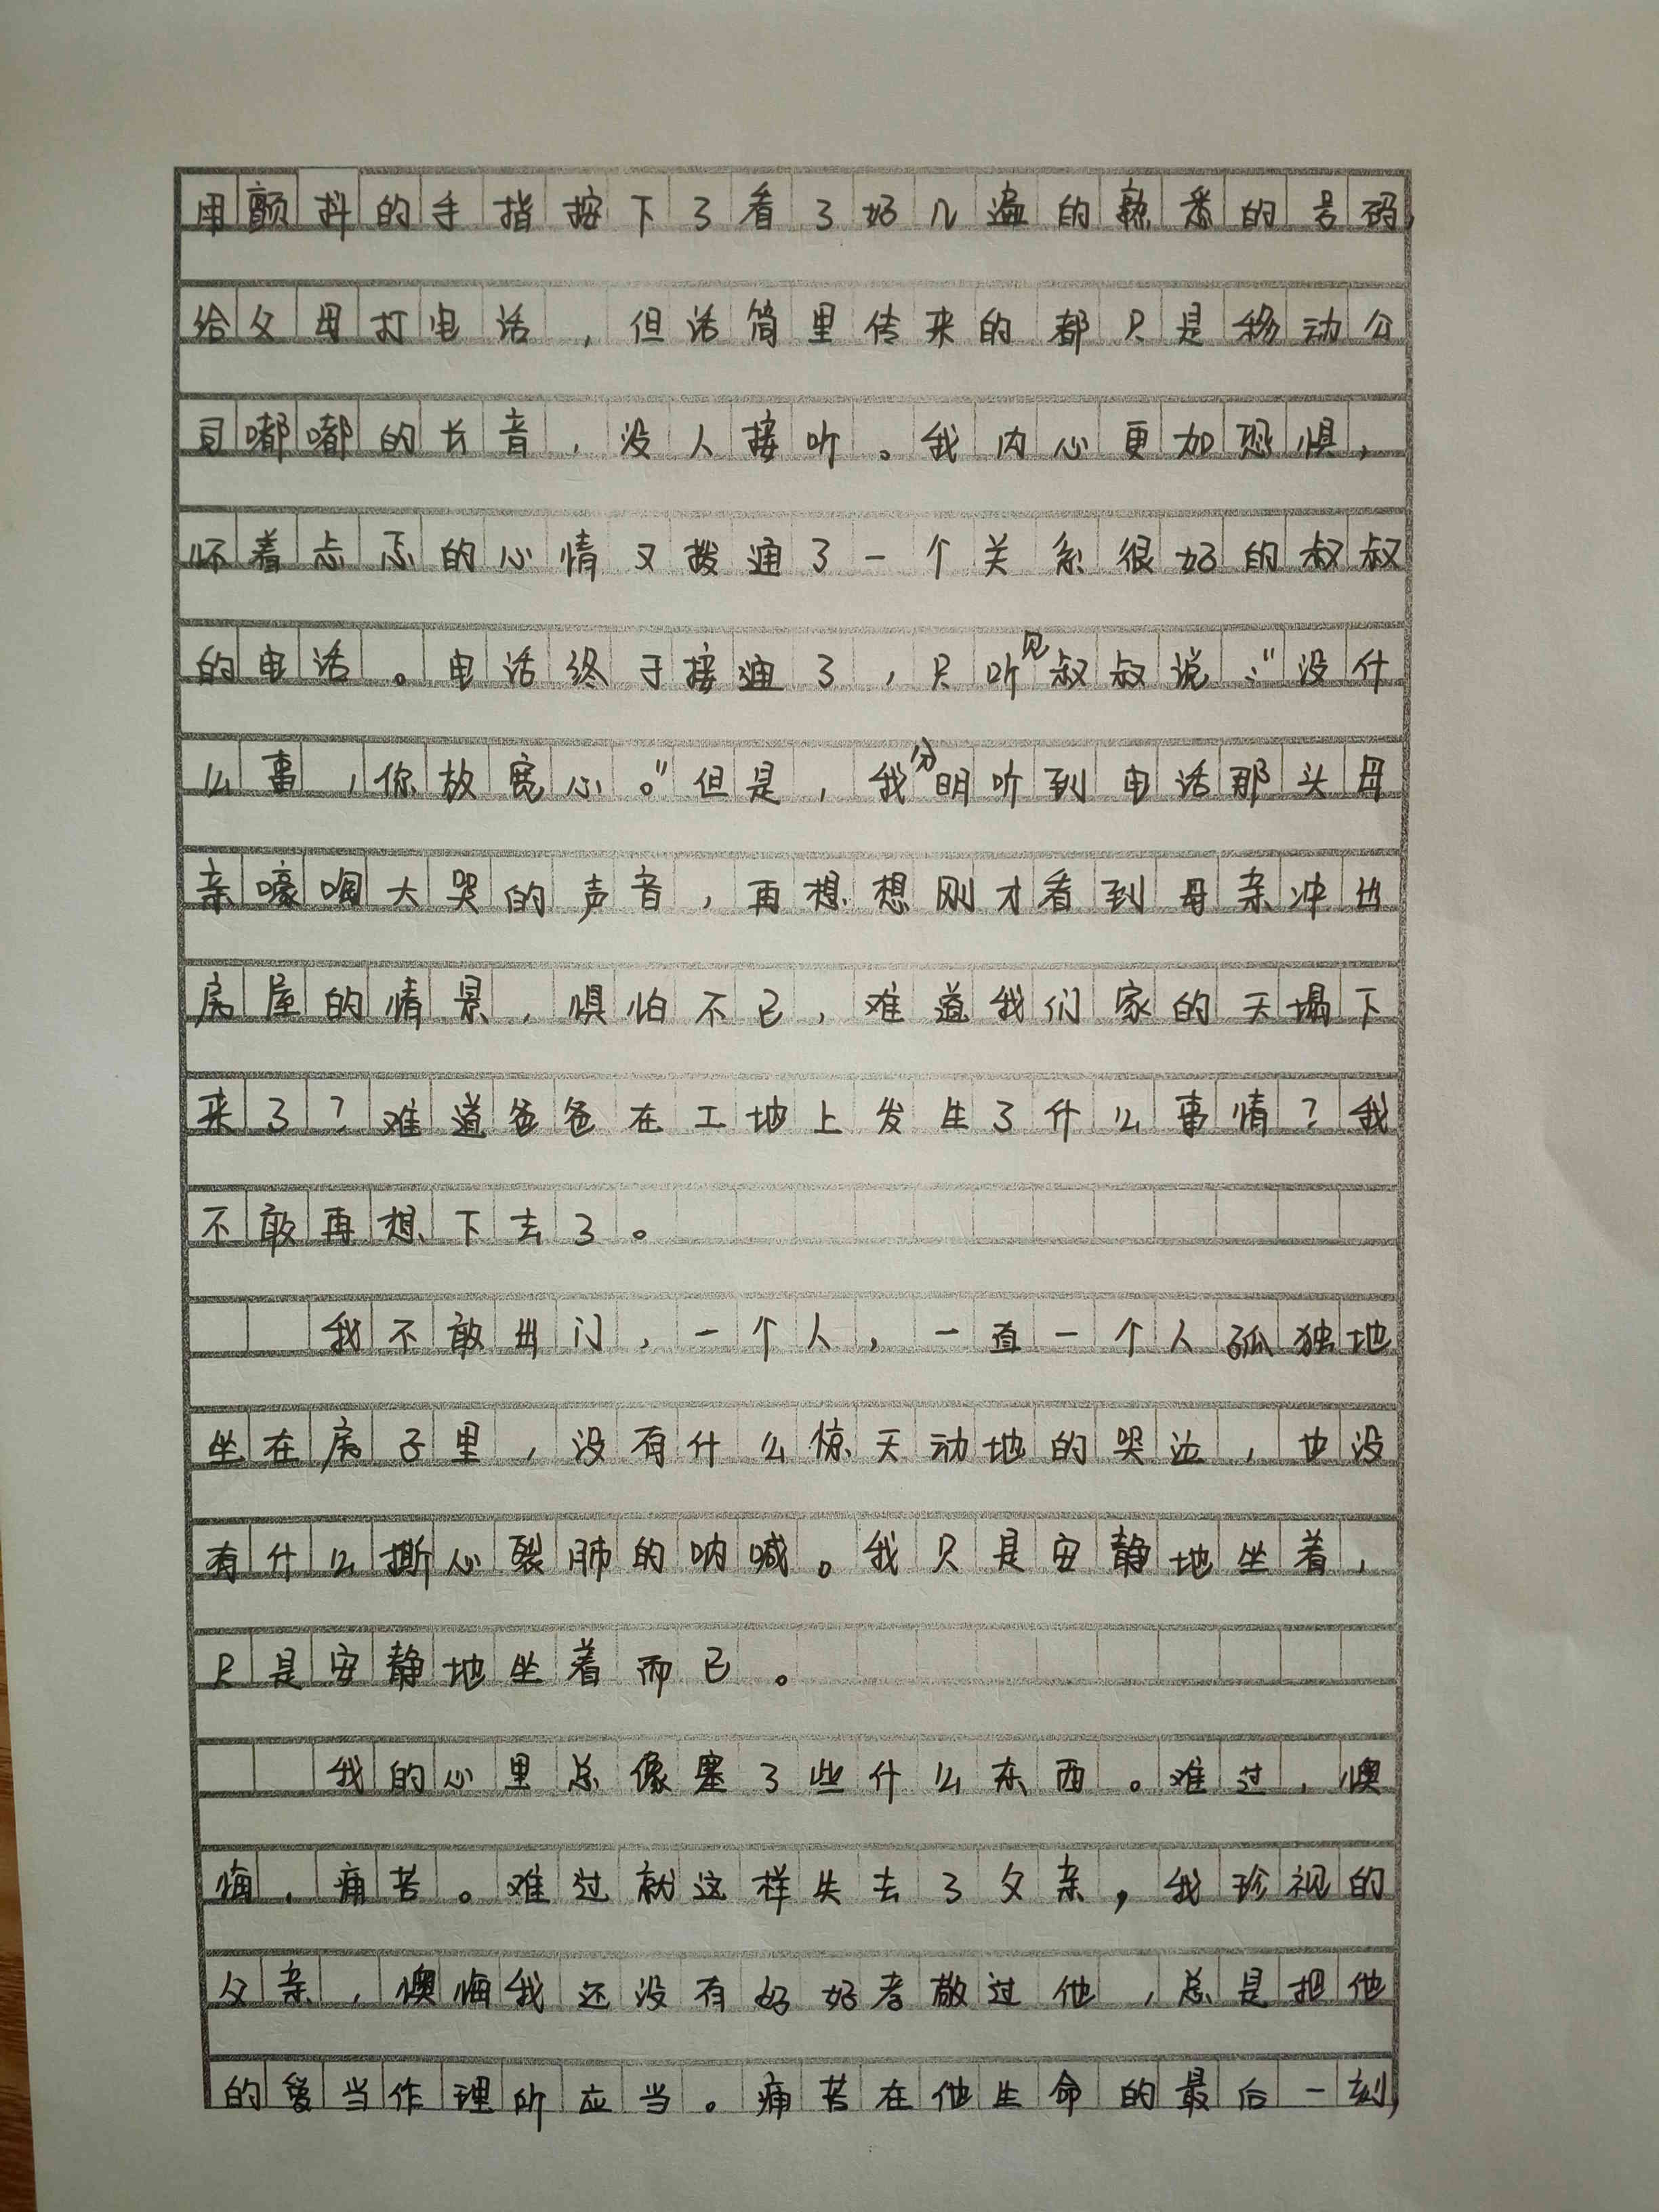 用颤抖的手指按下了看了好几遍的熟悉的号码,
给父母打电话，但话筒里传来的都只是移动公
司嘟嘟的长音，没人接听。我内心更加恐惧，
怀着忐忑的心情又拨通了一个关系很好的叔叔
的电话。电话终于接通了，只听见叔叔说："没什
么事，你放宽心。"但是，我分明听到电话那头母
亲嚎啕大哭的声音，再想想刚才看到母亲冲出
房屋的情景，惧怕不已，难道我们家的天塌下
来了？难道爸爸在工地上发生了什么事情？我
不敢再想下去了。
我不敢出门，一个人，一直一个人孤独地
坐在房子里，没有什么惊天动地的哭泣，也没
有什么撕心裂肺的呐喊。我只是安静地坐着，
只是安静地坐着而已。
我的心里总像塞了些什么东西。难过，懊
悔，痛苦。难过就这样失去了父亲，我珍视的
父亲，懊悔我还没有好好孝敬过他，总是把他
的爱当作理所应当。痛苦在他生命的最后一刻,